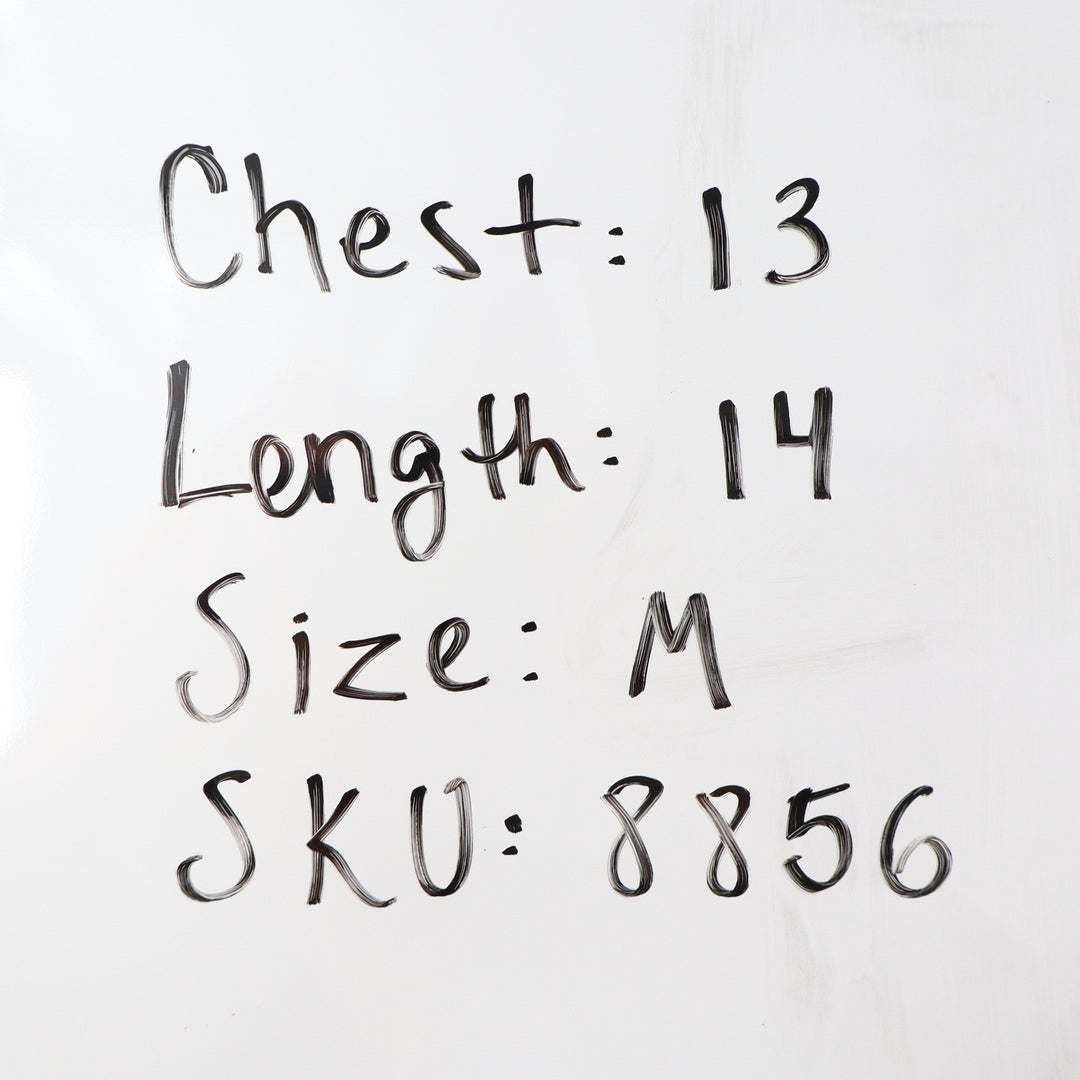 Chest: 13
Length: 14
Size: M
SKU: 8856